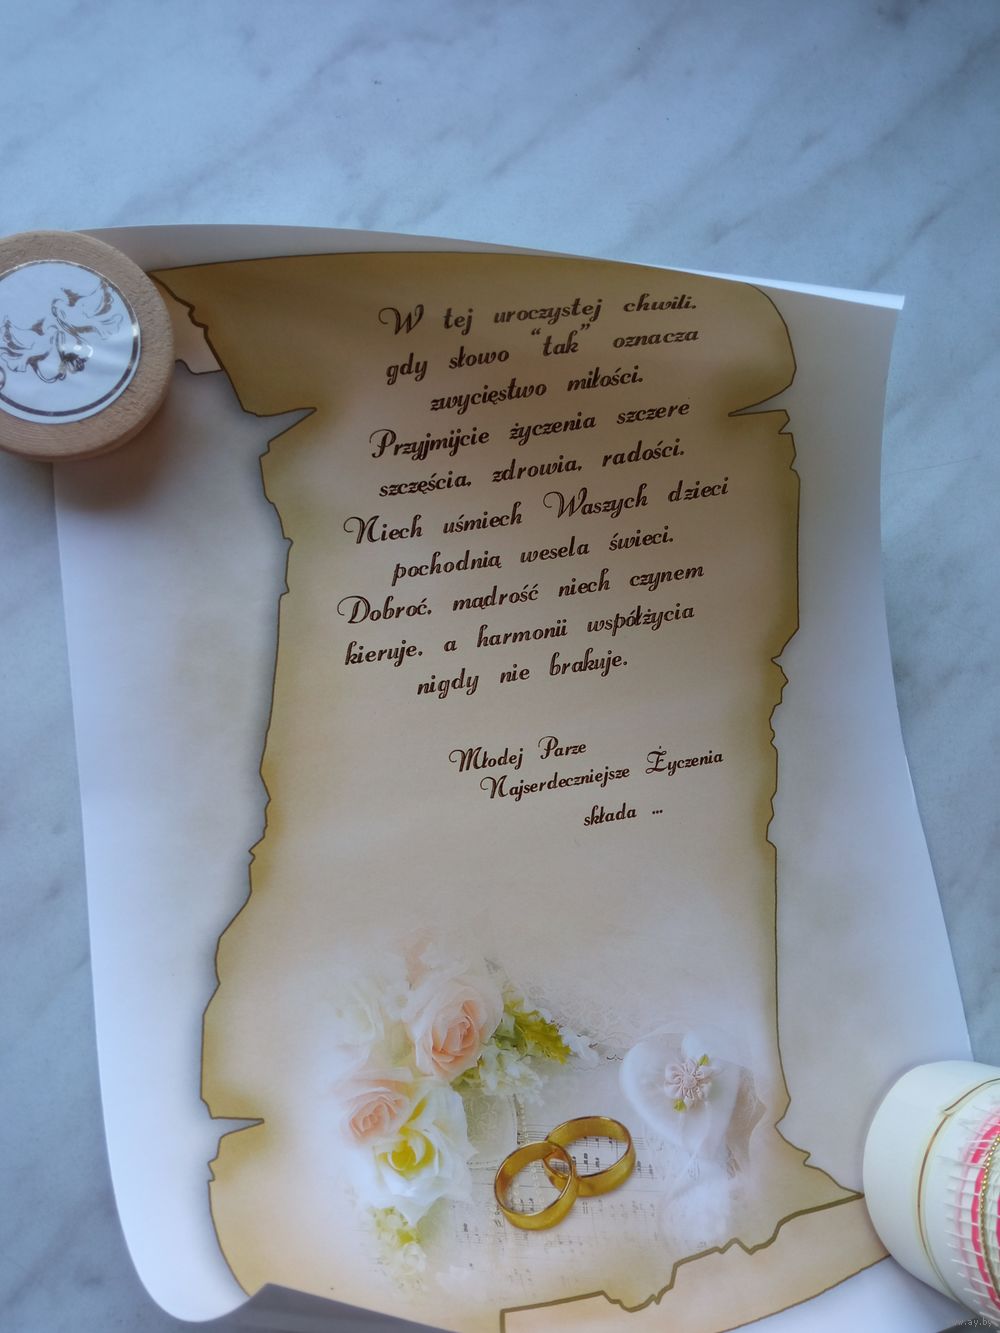 W tej uroczystej chwili,
gdy słowo “tak” oznacza
zwycięstwo miłości.
Przyjmijcie życzenia szczere
szczęścia, zdrowia, radości.
Niech uśmiech Waszych dzieci
pochodnią wesela świeci.
Dobroć, mądrość niech czynem
kieruje, a harmonii współżycia
nigdy nie brakuje.
Młodej Parze
Najserdeczniejsze Życzenia
składa ...